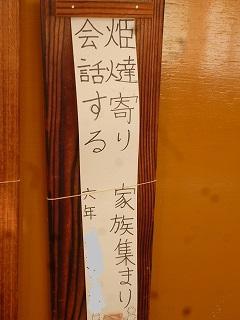 炬燵寄り 家族集まり
会話する
六年